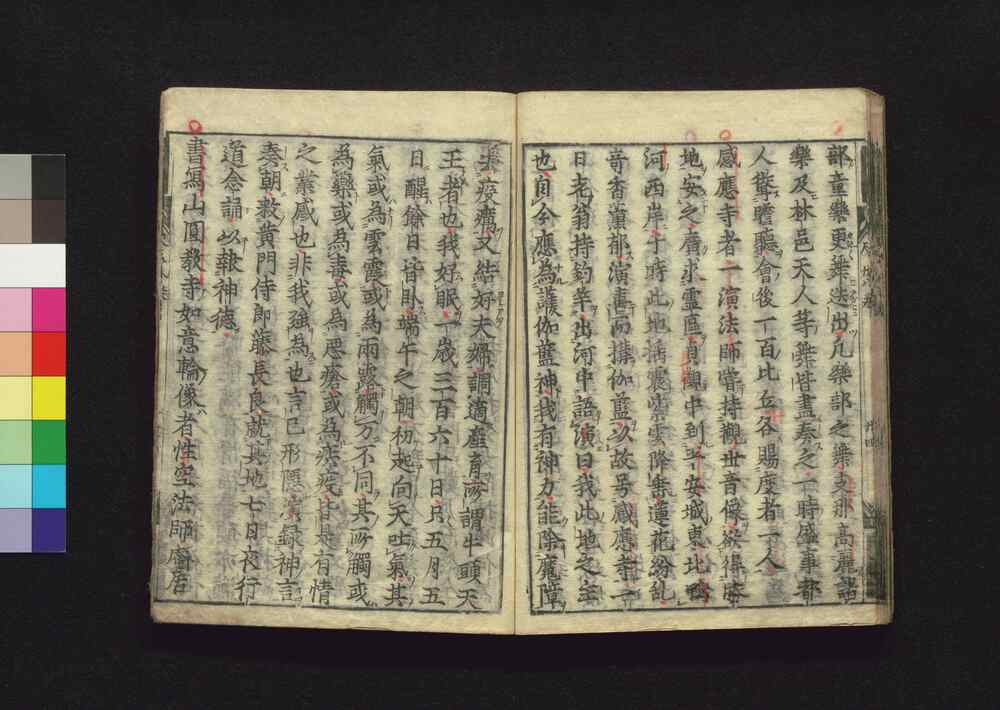 部童樂更樂迭出凡樂部之樂支那高麗諸
樂及林邑天人等樂皆盡奏之一時盛事都
人驚瞻聽會後一百比丘各賜度者一人
感應寺者一演法師嘗持觀世音像欲得勝
地安之廣求靈區自觀中到平安城東北鴨
河西岸于時此地福壤紫雲降垂蓮花紛乱
奇香薰郁演喜而搆伽藍以故号感應寺一
日老翁持釣竿出河中語演曰我此地之主
也自今應為護伽藍神我有神力能除魔障
攘疫癘又結好夫婦調適產育所謂牛頭天
王者也我好眠一歲三百六十日只五月五
日醒餘日皆臥端午之朝初起向天吐氣其
氣或為雲霞或為雨露觸万不同其所觸或
為藥或為毒或為惡瘡或為疾疫皆是有情
之業感也非我強為也言已形隱演錄神言
奏朝敕黃門侍郎藤長良就其地七日夜行
道念誦以報神德
書寫山圓教寺如意輪像者性空法師齊居